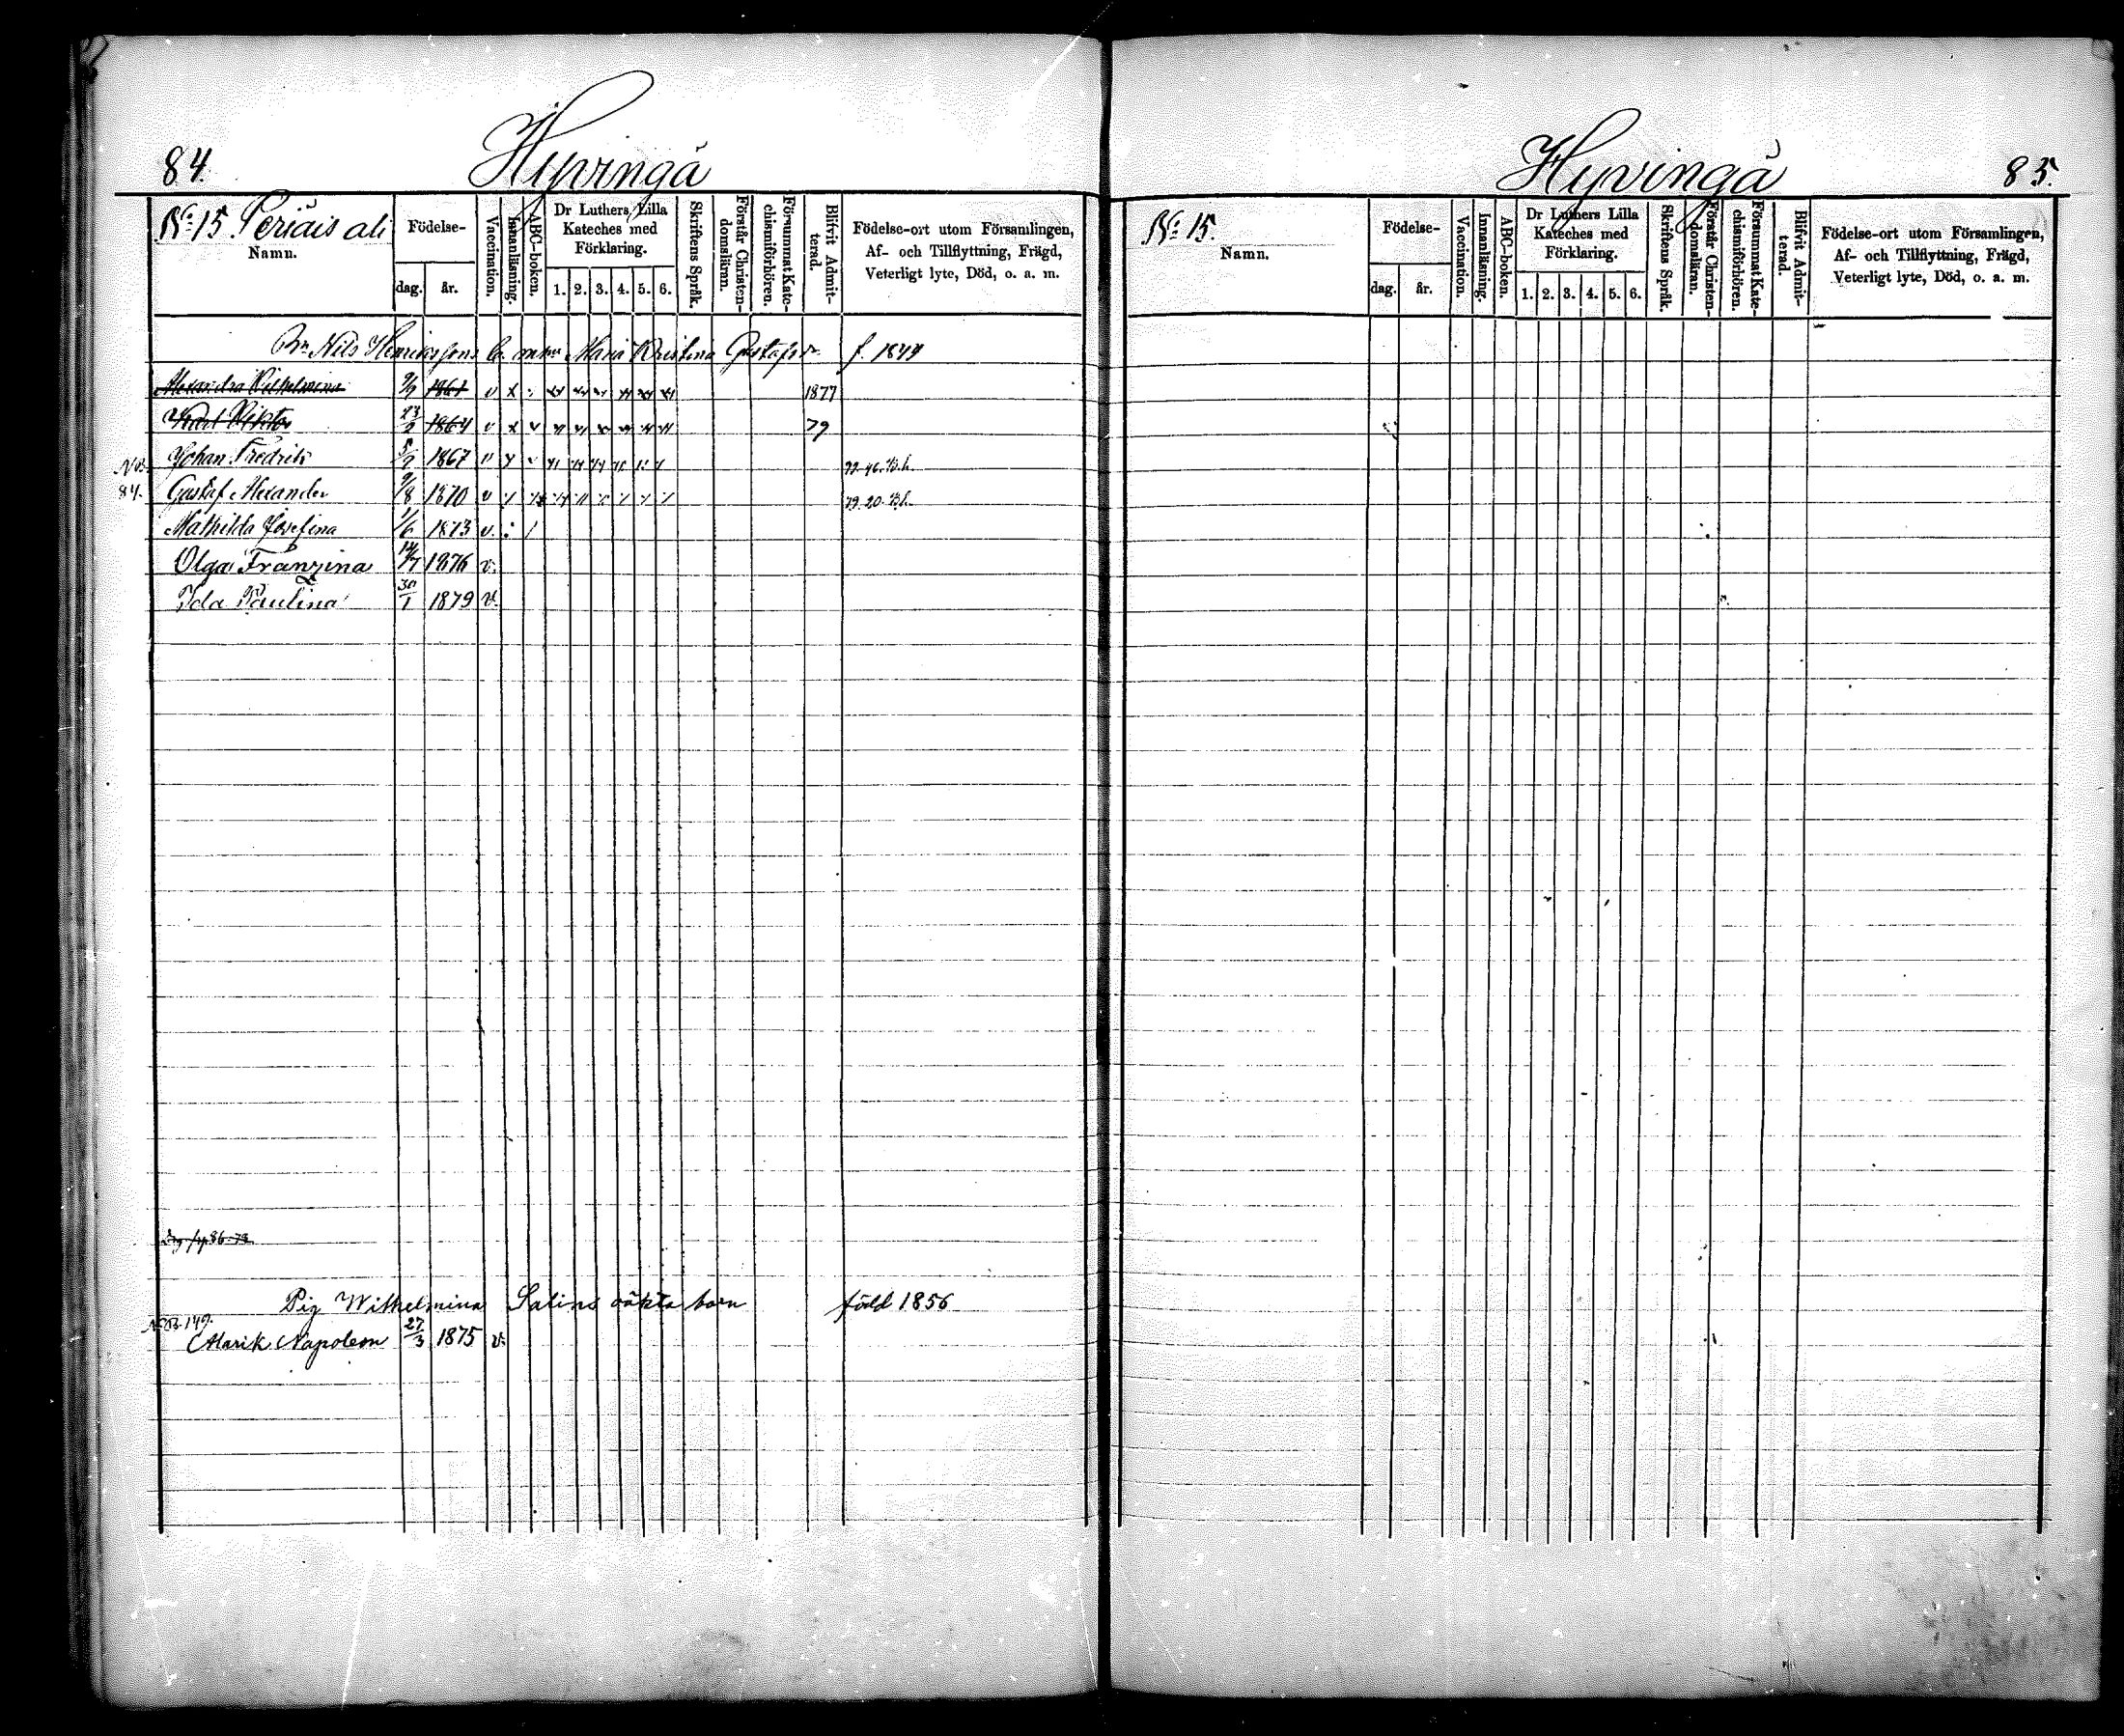 84.
Hyvingä
No 15 Periäis ali
Namn.
Födelse-
dag. år.
Vaccination.
Innanläsning.
ABC-boken.
Dr Luthers Lilla
Kateches med
Förklaring.
1. 2. 3. 4. 5. 6.
Skriftens Språk.
Förstår Christen-
domsläran.
Försummat Kate-
chismiförhören.
Blifvit Admit-
terad.
Födelse-ort utom Församlingen,
Af- och Tillflyttning, Frägd,
Veterligt lyte, Död, o. a. m.
Nils Henrikssons Maria Kristina
Alexandra Vilhelmina 9/9 1861 v x 1877
Karl Viktor 23/2 1864 v x v 79
Johan Fredrik 1867 v
Gustaf Alexander 9/8 1870 v
84.
Mathilda Josefina 1/6 1873 v.
Olga Franzina 1876 v.
Ida Paulina 30/1 1879 v.
Pig Wilhelmina Salins oäkta barn född 1856
149.
Alarik Napoleon 27/3 1875 v.
Hyvingä
85.
No 15.
Namn.
Födelse-
dag. år.
Vaccination.
Innanläsning.
ABC-boken.
Dr Luthers Lilla
Kateches med
Förklaring.
1. 2. 3. 4. 5. 6.
Skriftens Språk.
Förstår Christen-
domsläran.
Försummat Kate-
chismiförhören.
Blifvit Admit-
terad.
Födelse-ort utom Församlingen,
Af- och Tillflyttning, Frägd,
Veterligt lyte, Död, o. a. m.